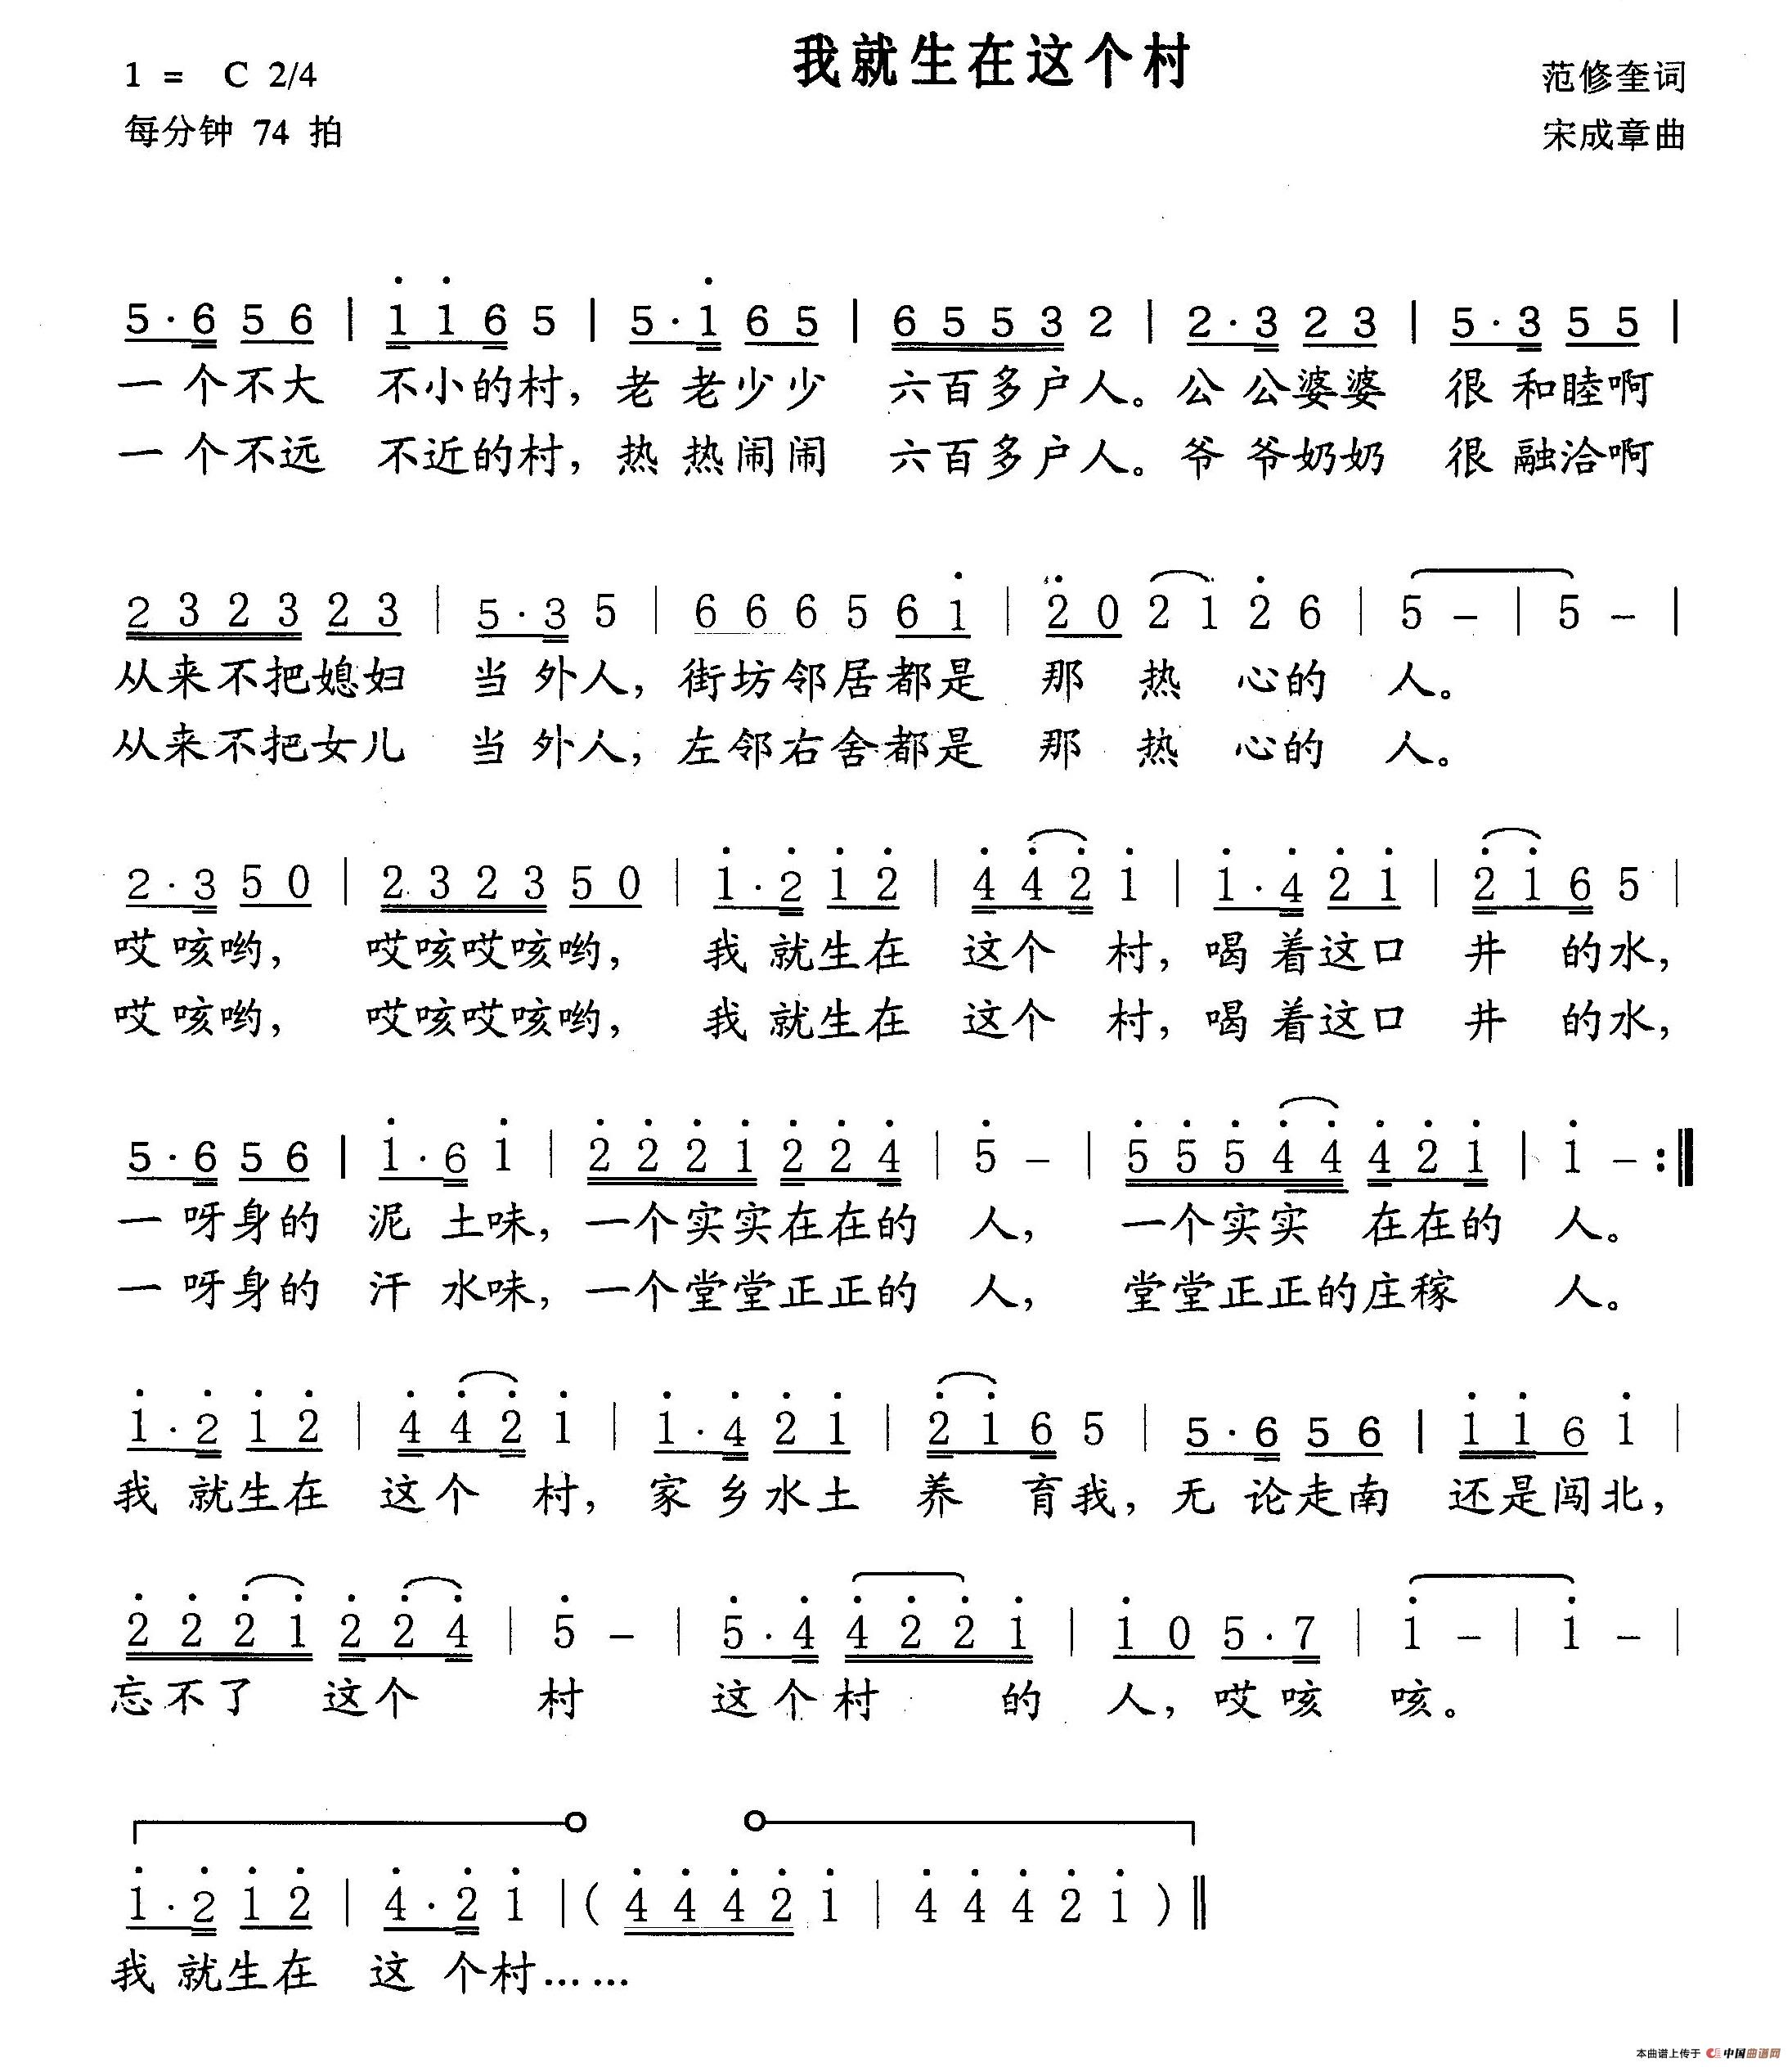 我就生在这个村
1 = C 2/4
范修奎词
每分钟 74 拍
宋成章曲
5·6 5 6 | 1̇ 1̇ 6 5 | 5·1̇ 6 5 | 6 5 5 3 2 | 2·3 2 3 | 5·3 5 5 |
一个不大 不小的村，老老少少 六百多户人。公公婆婆 很和睦啊
一个不远 不近的村，热热闹闹 六百多户人。爷爷奶奶 很融洽啊
2 3 2 3 2 3 | 5·3 5 | 6 6 6 5 6 1̇ | 2̇ 0 2 1 2̇ 6 | 5 – | 5 – |
从来不把媳妇 当外人，街坊邻居都是 那 热 心的 人。
从来不把女儿 当外人，左邻右舍都是 那 热 心的 人。
2·3 5 0 | 2 3 2 3 5 0 | 1̇·2̇ 1̇ 2̇ | 4̇ 4̇ 2̇ 1̇ | 1̇·4̇ 2̇ 1̇ | 2̇ 1̇ 6 5 |
哎咳哟， 哎咳哎咳哟， 我就生在 这个 村，喝着这口 井 的水，
哎咳哟， 哎咳哎咳哟， 我就生在 这个 村，喝着这口 井 的水，
5·6 5 6 | 1̇·6 1̇ | 2̇ 2̇ 2̇ 1̇ 2̇ 2̇ 4̇ | 5̇ – | 5̇ 5̇ 5̇ 4̇ 4̇ 4̇ 2̇ 1̇ | 1̇ – :‖
一呀身的 泥土味，一个实实在在的 人， 一个实实 在在的 人。
一呀身的 汗水味，一个堂堂正正的 人， 堂堂正正的庄稼 人。
1̇·2̇ 1̇ 2̇ | 4̇ 4̇ 2̇ 1̇ | 1̇·4̇ 2̇ 1̇ | 2̇ 1̇ 6 5 | 5·6 5 6 | 1̇ 1̇ 6 1̇ |
我就生在 这个 村，家乡水土 养 育我，无论走南 还是闯北，
2̇ 2̇ 2̇ 1̇ 2̇ 2̇ 4̇ | 5̇ – | 5̇·4̇ 4̇ 2̇ 2̇ 1̇ | 1̇ 0 5·7 | 1̇ – | 1̇ – |
忘不了 这个 村 这个村 的 人，哎咳 咳。
1̇·2̇ 1̇ 2̇ | 4̇·2̇ 1̇ | ( 4̇ 4̇ 4̇ 2̇ 1̇ | 4̇ 4̇ 4̇ 2̇ 1̇ ) ‖
我就生在 这个村……
本曲谱上传于 中国曲谱网